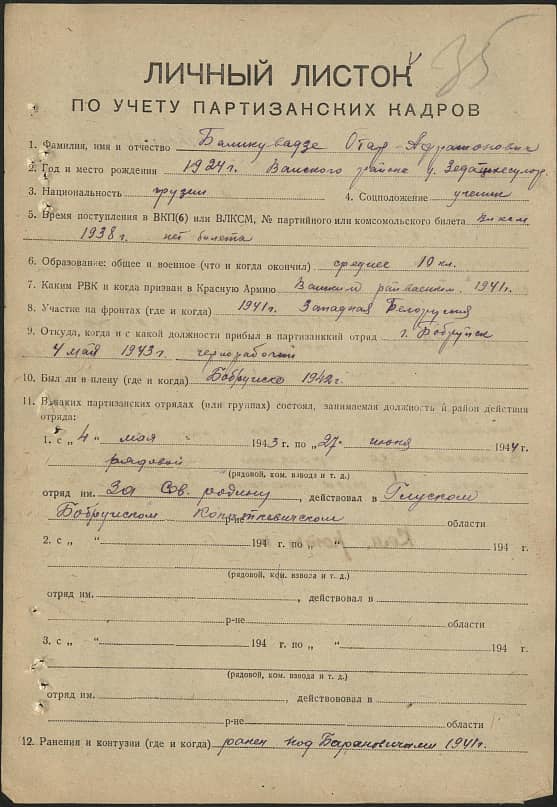 35
ЛИЧНЫЙ ЛИСТОК
ПО УЧЕТУ ПАРТИЗАНСКИХ КАДРОВ
1. Фамилия, имя и отчество Отар
2. Год и место рождения 1924г. Ванского района
3. Национальность грузин 4. Соцположение ученик
5. Время поступления в ВКП(б) или ВЛКСМ, № партийного или комсомольского билета влксм
1938 г. нет билета
6. Образование: общее и военное (что и когда окончил) среднее 10 кл.
7. Каким РВК и когда призван в Красную Армию Ванским 1941г.
8. Участие на фронтах (где и когда) 1941г. Западная Белоруссия
9. Откуда, когда и с какой должности прибыл в партизанский отряд г. Бобруйск
4 мая 1943г. чернорабочий
10. Был ли в плену (где и когда) Бобруйске 1942г.
11. В каких партизанских отрядах (или группах) состоял, занимаемая должность и район действия
отряда:
1. с „4“ мая 1943 г. по „27“ июня 1944 г.
рядовой
(рядовой, ком. взвода и т. д.)
отряд им. За Сов. родину, действовал в Глуском
Бобруйском Копаткевичском р-не области
2. с „ “ 194 г. по „ “ 194 г.
(рядовой, ком. взвода и т. д.)
отряд им. , действовал в
р-не области
3. с „ “ 194 г. по „ “ 194 г.
(рядовой, ком. взвода и т. д.)
отряд им. , действововал в
р-не области
12. Ранения и контузии (где и когда) ранен под Барановичами 1941г.